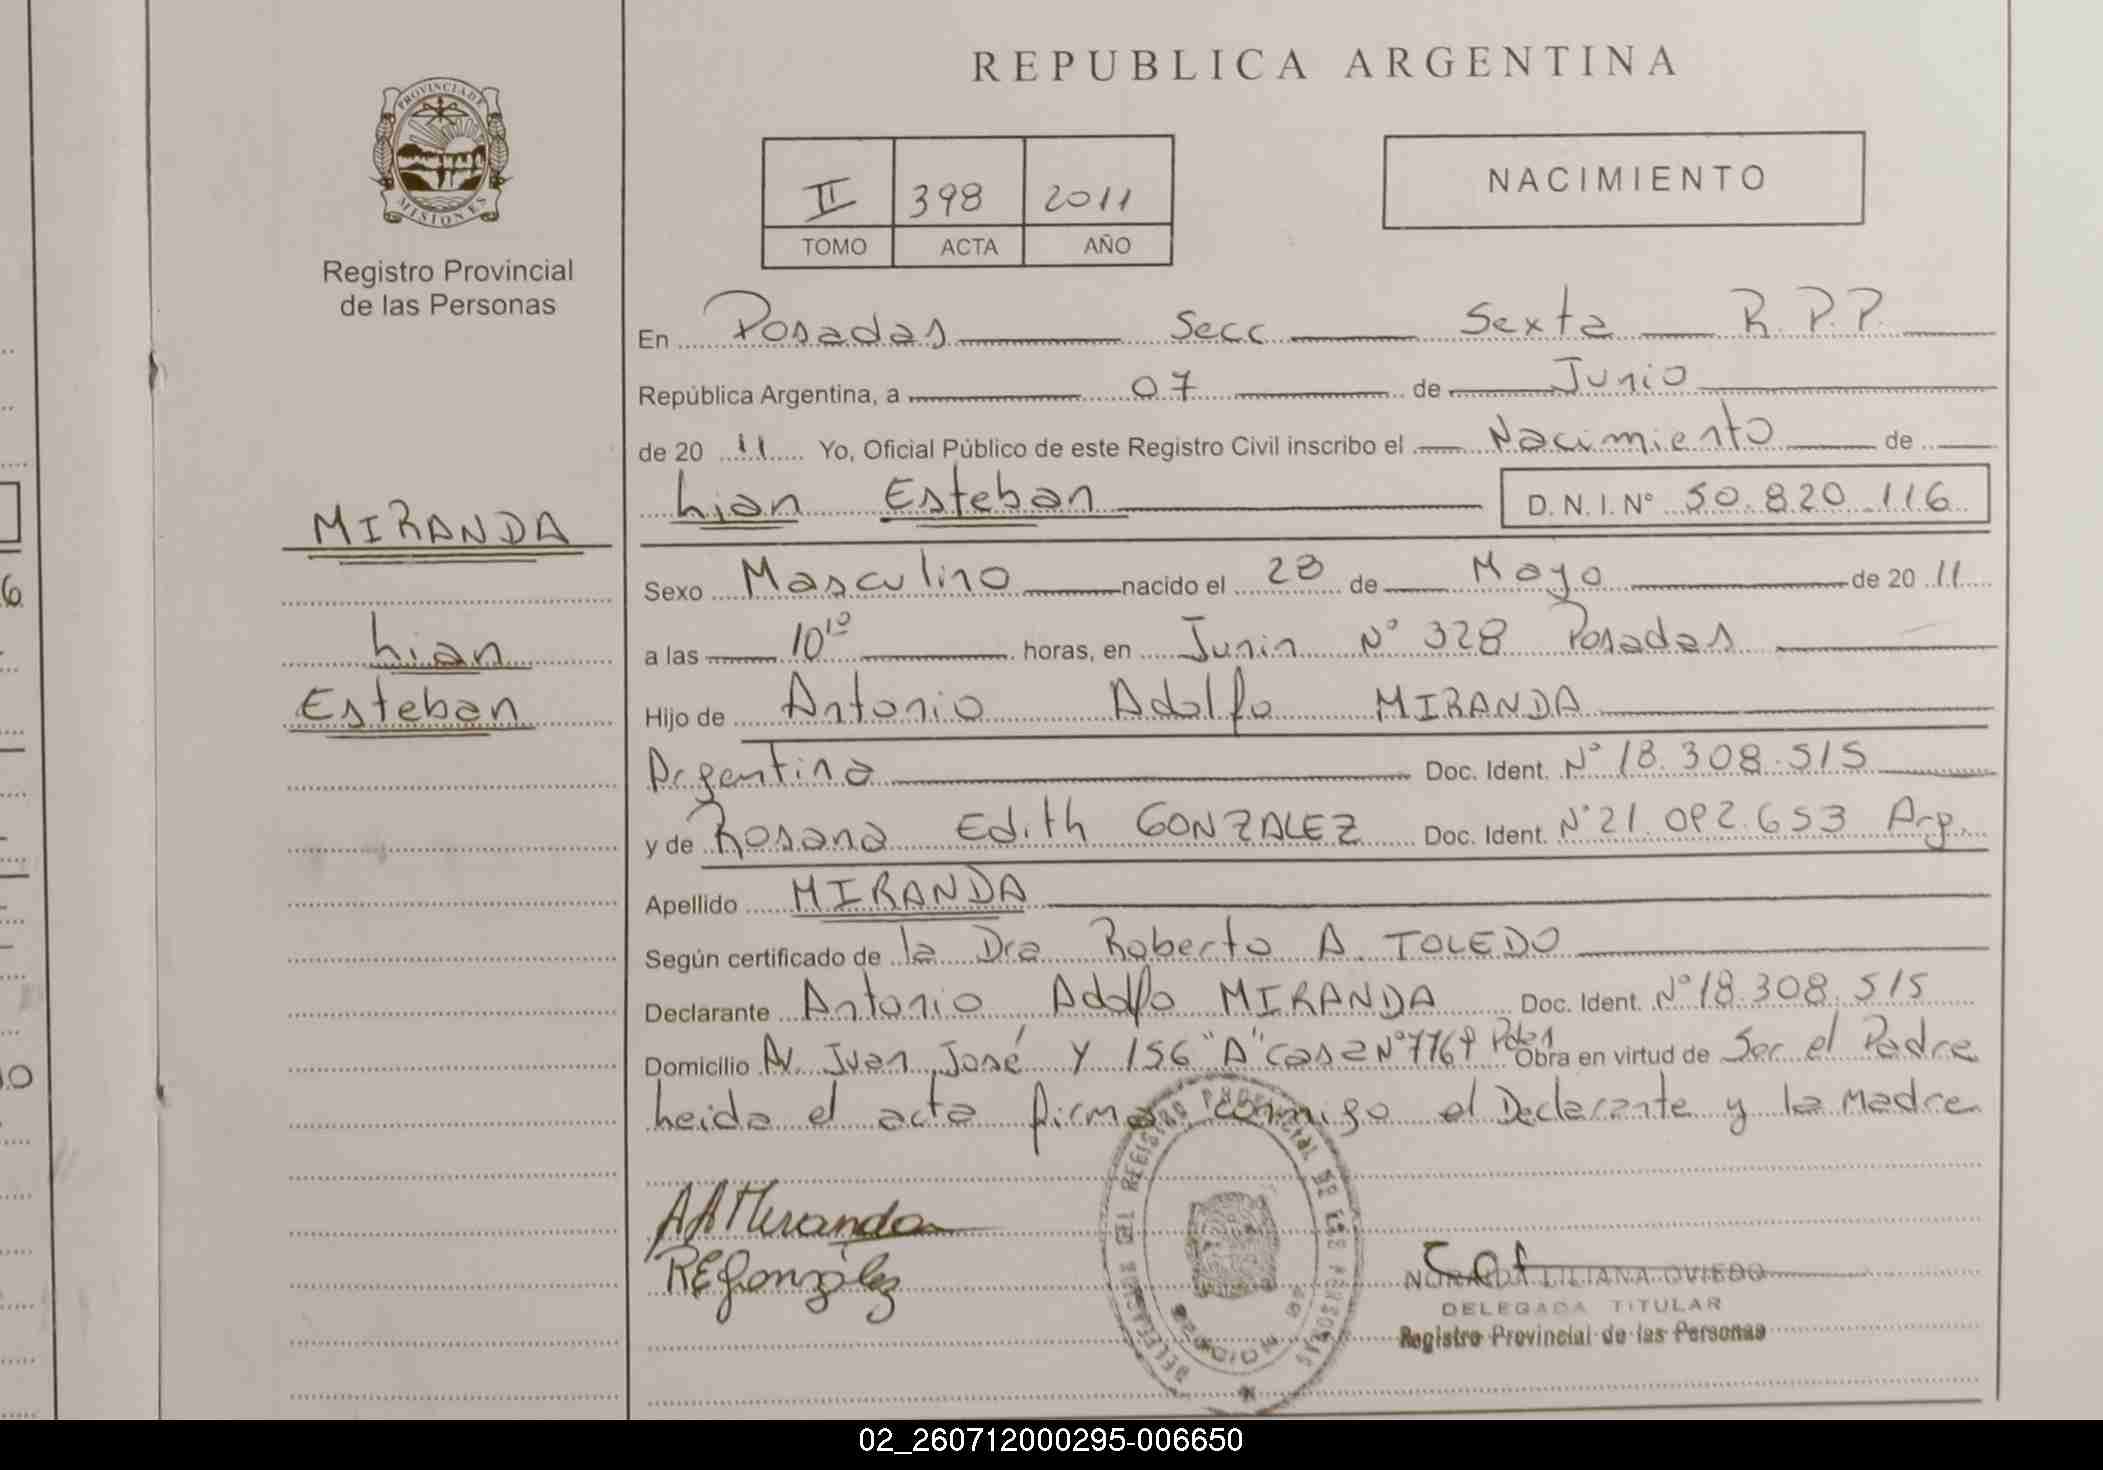 REPUBLICA ARGENTINA
PROVINCIA DE
MISIONES
Registro Provincial
de las Personas
II 398 2011
TOMO ACTA AÑO
NACIMIENTO
En Posadas Secc Sexta R.P.P.
República Argentina, a 07 de Junio
de 20 11 Yo, Oficial Público de este Registro Civil inscribo el Nacimiento de
Lian Esteban D.N.I. Nº 50.820.116
MIRANDA
Lian
Esteban
Sexo Masculino nacido el 28 de Mayo de 20 11
a las 10¹⁰ horas, en Junin Nº 328 Posadas
Hijo de Antonio Adolfo MIRANDA
Argentina Doc. Ident. Nº 18.308.515
y de Rosana Edith GONZALEZ Doc. Ident. Nº 21.092.653 Arg.
Apellido MIRANDA
Según certificado de la Dra Roberto A. TOLEDO
Declarante Antonio Adolfo MIRANDA Doc. Ident. Nº 18.308.515
Domicilio Av. Juan José y 156 "A" casa Nº 7764 Obra en virtud de Ser el Padre
Leida el acta firma conmigo el Declarante y la Madre
AAMiranda
REGonzález
REGISTRO PROVINCIAL DE LAS PERSONAS
NORMA LILIANA OVIEDO
DELEGADA TITULAR
Registro Provincial de las Personas
02_260712000295-006650